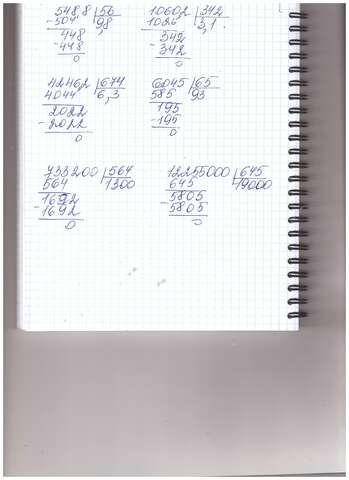 5488 | 56
-504 | 98
448
-448
0
1060,2 | 342
-1026 | 3,1
342
-342
0
4246,2 | 674
4044 | 6,3
2022
-2022
0
6045 | 65
585 | 93
195
-195
0
733200 | 564
564 | 1300
1692
-1692
0
12255000 | 645
645 | 19000
5805
-5805
0